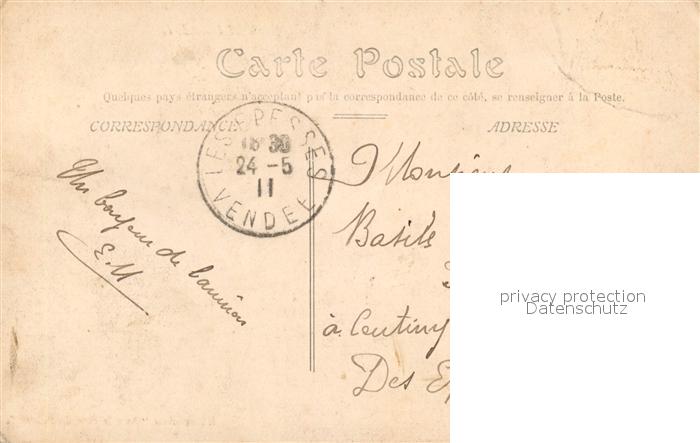 Carte Postale
Quelques pays étrangers n'acceptant pas la correspondance de ce côté, se renseigner à la Poste.
CORRESPONDANCE
ADRESSE
LES EPESSES
18 30
24 - 5
11
VENDEE
Un bonjour de
E. M
Monsieur
Basile
à
Des
privacy protection
Datenschutz